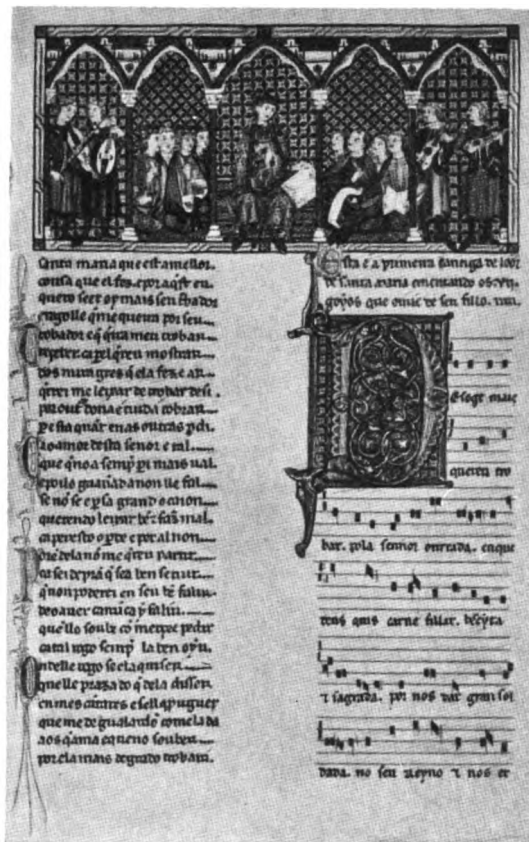 Santa maria que est a mellor
cousa que el fez. e por aqst eu
quero seer oy mais seu trobador
e rogolle que me queira por seu
trobador e q queira meu trobar
reçeber. ca per el qreu mostrar
dos miragres q ela fez e ar
qrrei me leixar de trobar desi
por outra dona e cuid a cobrar
per esta quãt enas outras pdi
ca o amor desta señor e tal
que quen o a semp p i mais ual
e poilo gaannad a non lle fal
se nõ se e p sa grand ocaion
querendo leixar bẽ e fazer mal
ca per esto o pde e per al non
dela nõ me qreu partir
ca sei de pran q sea ben seruir
q non poderei en seu bẽ falir
de o auer ca nũca y faliu
quello soube cõ merçee pedir
ca tal rogo semp ela ben oyu
onde lle rogo se ela quiser
que lle praza do q dela disser
en meus cantares e sell aprouguer
que me de gualardõ come ela da
aos q ama e queno souber
por ela mais de grado trobara
Esta e a primeira cantiga de loor
de santa maria ementando os .vii.
goyos que ouue de seu fillo.
Des oge mais
quer eu tro
bar. pola sennor onrrada. en que
deus quis carne fillar. bẽeyta
⁊ sagrada. por nos dar gran sol
dada. no seu reyno ⁊ nos er